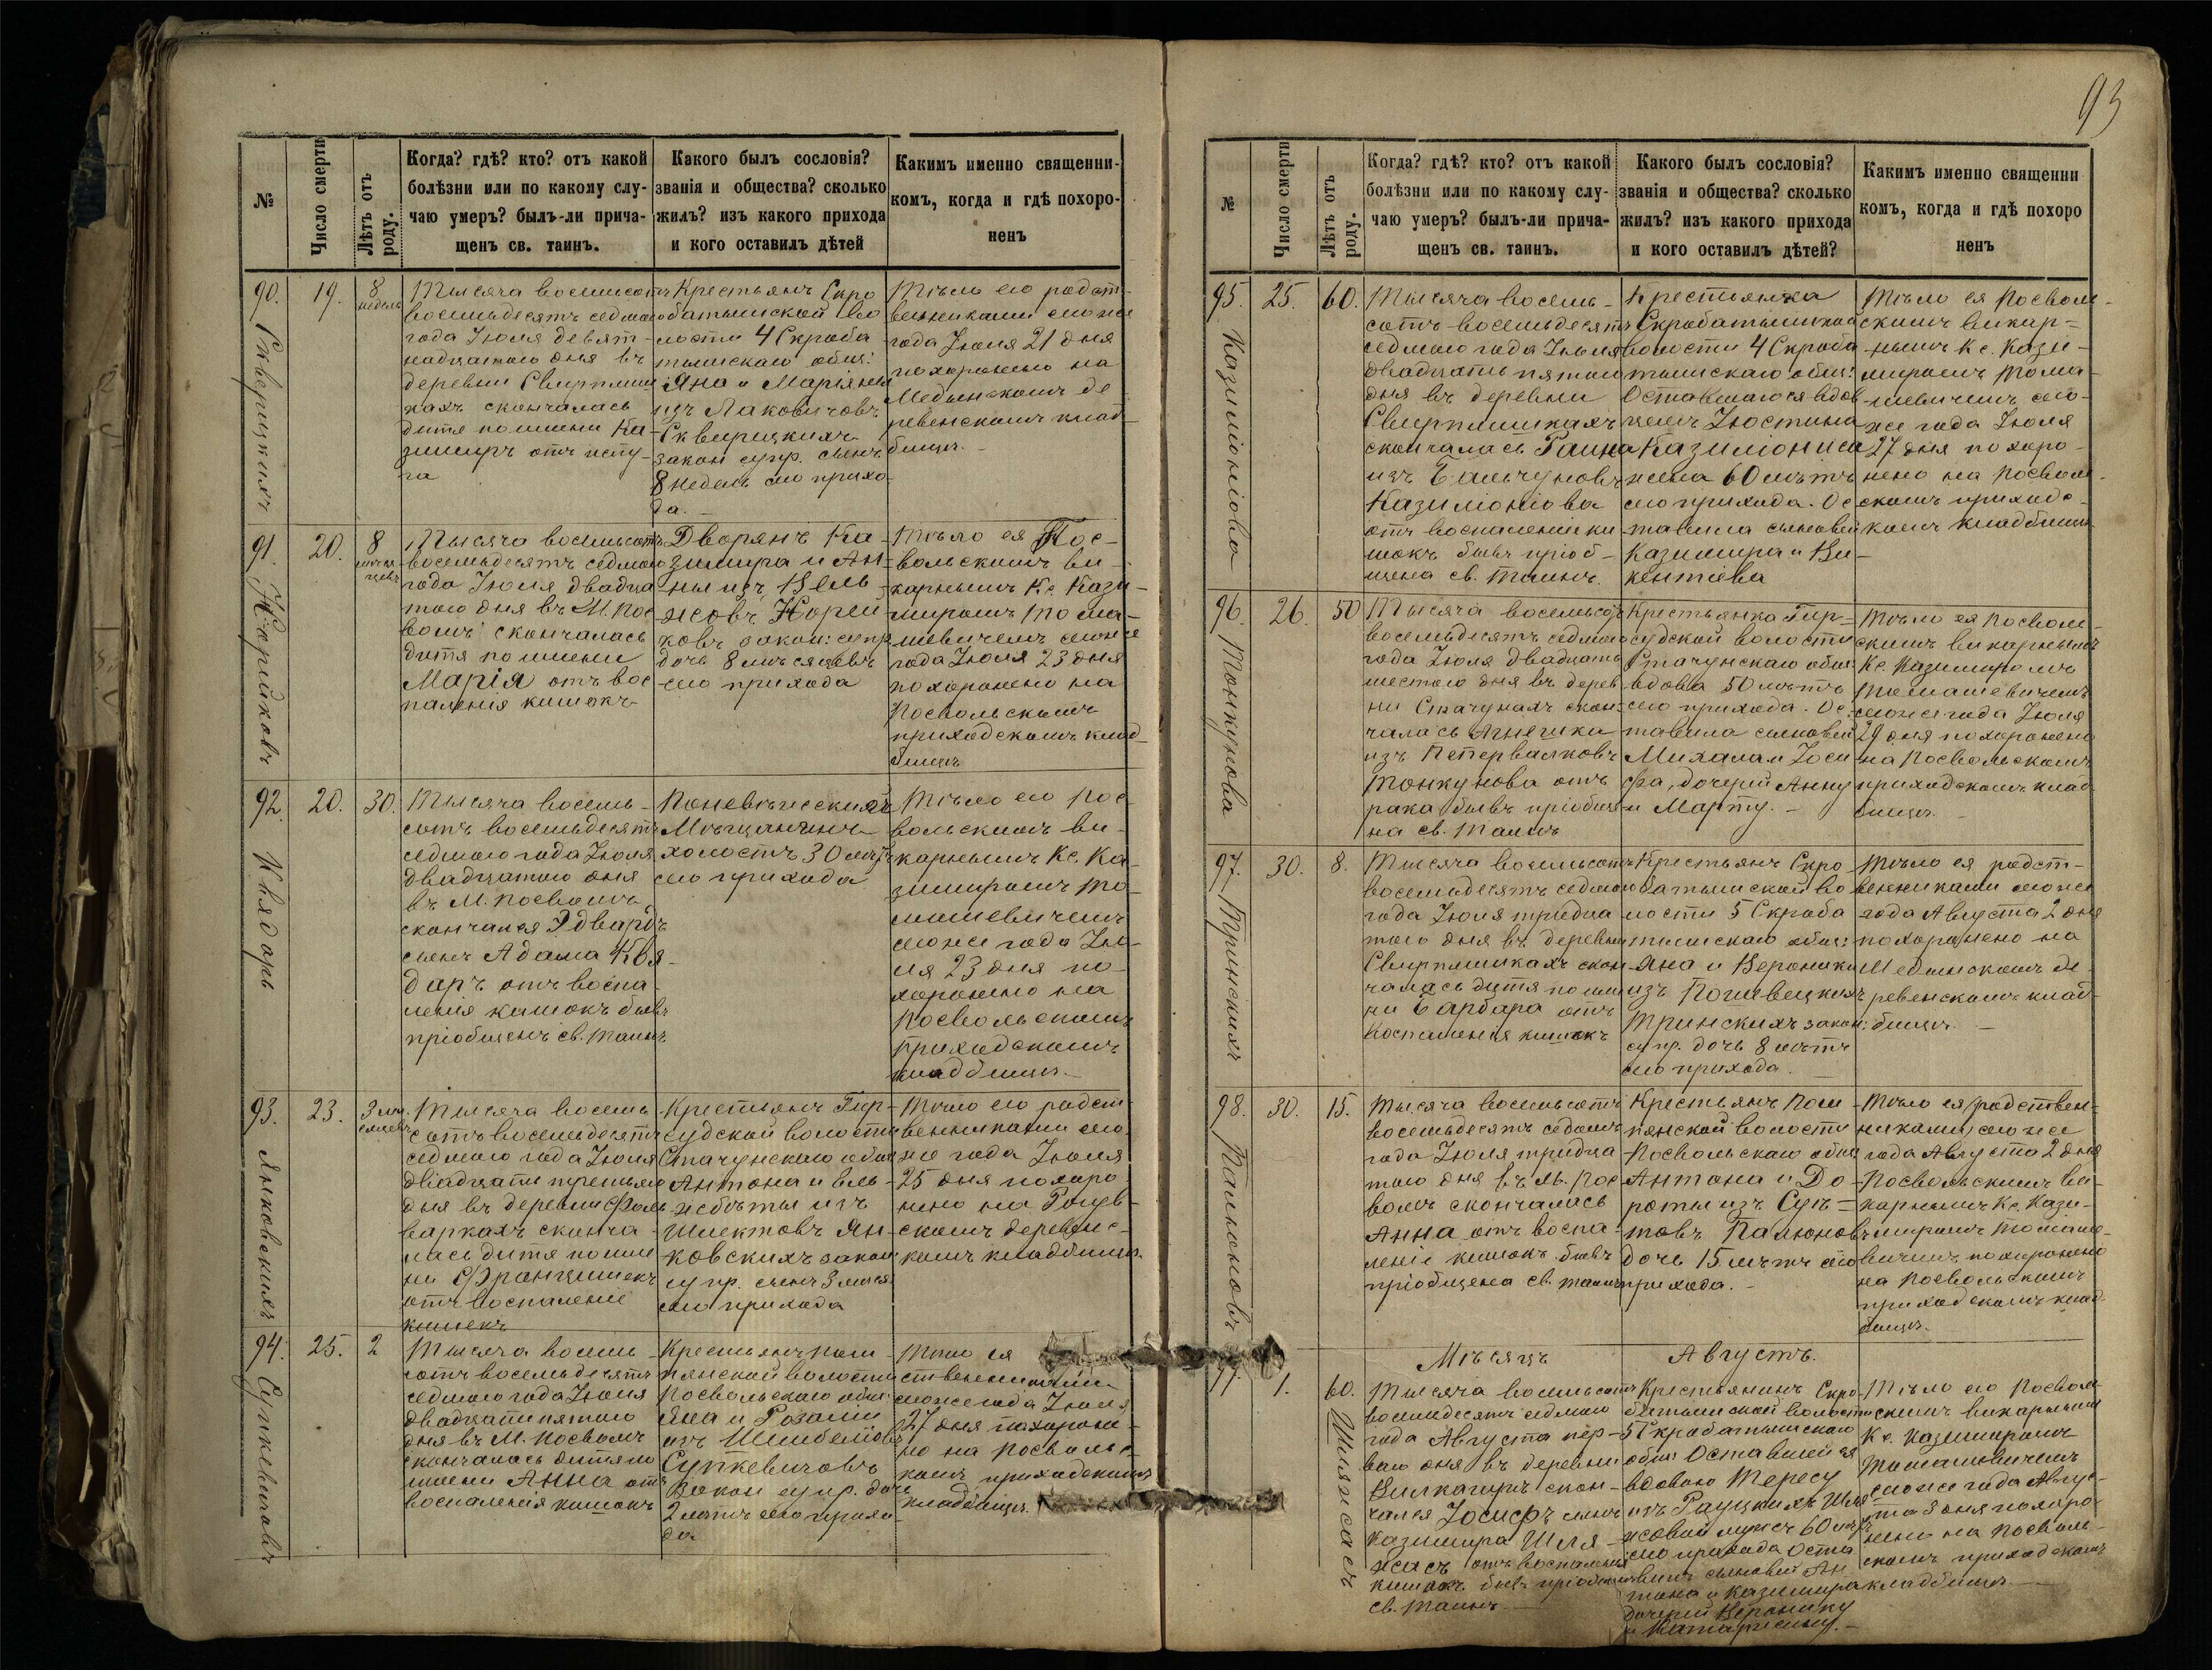 93
№
Число смерти
Лѣтъ отъ роду.
Когда? гдѣ? кто? отъ какой
болѣзни или по какому слу-
чаю умеръ? былъ-ли прича-
щенъ св. таинъ.
Какого былъ сословія?
званія и общества? сколько
жилъ? изъ какого прихода
и кого оставилъ дѣтей
Какимъ именно священни-
комъ, когда и гдѣ похоро-
ненъ
90.
Сквирицкихъ
19.
8
недель
Тысяча восемьсотъ
восемьдесятъ седмаго
года Іюля девят-
надцатаго дня въ
деревни Свирплиш
кахъ скончалась
дитя по имени Ка-
зимиръ отъ испу-
га
Крестьянъ Скро
батышской во
лости 4 Скроба
тышскаго общ:
Яна и Маріяны
изъ Лаковичовъ
Сквирицкихъ
закон супр. сынъ
8 недель сего прихо
да.
Тѣло его родст-
венниками сегоже
года Іюля 21 дня
похоронено на
Медынскомъ де
ревенскомъ клад-
бищѣ.
91.
Норейковъ
20.
8
месяцевъ
Тысяча восемьсотъ
восемьдесятъ седмаго
года Іюля двадца
таго дня въ М. Пос
воль скончалась
дитя по имени
Марія отъ вос
паленія кишокъ
Дворянъ Ка-
зимира и Ан-
ны изъ Вель-
жсовъ Норей-
ковъ закон: супр
дочь 8 мѣсяцевъ
сего прихода
Тѣло ея Пос-
вольскимъ ви-
карнымъ Кс. Кази-
миромъ Тома-
шевичемъ сегоже
года Іюля 23 дня
похоронено на
Посвольскомъ
приходскомъ клад-
бищѣ
92.
Квядаръ
20.
30.
Тысяча восемь-
сотъ восемьдесятъ
седмаго года Іюля
двадцатаго дня
въ М. Посволь
скончался Эдвардъ
сынъ Адама Квя-
даръ отъ воспа-
ленія кишокъ бывъ
пріобщенъ св. таинъ
Поневѣжскій
Мѣщанинъ
холостъ 30 лѣтъ
сего прихода
Тѣло его Пос-
вольскимъ ви-
карнымъ Кс. Ка-
зимиромъ То-
машевичемъ
сегоже года Ію-
ля 23 дня по-
хоронено на
Посвольскомъ
приходскомъ
кладбищѣ.
93.
Янковскихъ
23.
3 мѣ
сяцевъ
Тысяча восемь
сотъ восемьдесятъ
седмаго года Іюля
двадцати третьяго
дня въ деревни Фоль
варкахъ сконча
лась дитя по име
ни Францишекъ
отъ воспаленіе
кишекъ
Крестьянъ Гир-
судской волости
Стачунскаго общ
Антона и Ель-
жбѣты изъ
Шлектовъ Ян-
ковскихъ закон
супр. сынъ 3 мѣся
сего прихода
Тѣло его родст
венниками сего
же года Іюля
25 дня похоро
нено на
скомъ деревенс-
комъ кладбищѣ.
94.
Супкевичовъ
25.
2
Тысяча восемь
сотъ восемьдесятъ
седмаго года Іюля
двадцати пятаго
дня въ М. Посволь
скончалась дитя по
имени Анна отъ
воспаленія кишокъ
Крестьянъ Пом
пянской волости
Посвольскаго общ:
Яна и Розаліи
изъ
Супкевичовъ
Закон супр. дочь
2 лѣтъ сего прихо
да
Тѣло ея
ственниками
сегоже года Іюля
27 дня похороне-
но на Посвольс-
комъ приходскомъ
кладбищѣ.
№
Число смерти
Лѣтъ отъ роду.
Когда? гдѣ? кто? отъ какой
болѣзни или по какому слу-
чаю умеръ? былъ-ли прича-
щенъ св. таинъ.
Какого былъ сословія?
званія и общества? сколько
жилъ? изъ какого прихода
и кого оставилъ дѣтей?
Какимъ именно священни
комъ, когда и гдѣ похоро
ненъ
95.
Казиліоніова
25.
60.
Тысяча восемь-
сотъ восемьдесятъ
седмаго года Іюля
двадцать пятаго
дня въ деревни
Свирплишкахъ
скончалась Раина
изъ Бальчуновъ
Казиліоніова
отъ воспаленія ки
шокъ бывъ пріоб-
щена св. таинъ.
Крестьянка
Скробатышской
волости 4 Скроба
тышскаго общ:
Оставшагося вдов
цемъ Іюстина
Казиліониса
жена 60 лѣтъ
сего прихода. Ос
тавила сыновей
Казимира и Ви-
кентіева
Тѣло ея Посволь-
скимъ викар-
нымъ Кс. Кази-
миромъ Тома-
шевичемъ сего-
же года Іюля
27 дня похоро-
нено на Посволь-
скомъ приходс-
комъ кладбищѣ
96.
Тонкунова
26.
50
Тысяча восемьсотъ
восемьдесятъ седмаго
года Іюля двадцать
шестаго дня въ дерев
ни Стачунахъ скон-
чалась Агнешка
изъ Петервалковъ
Тонкунова отъ
рака бывъ пріобще
на св. таинъ
Крестьянка Гир-
судской волости
Стачунскаго общ:
вдова 50 лѣтъ
сего прихода. Ос-
тавила сыновей
Михала и Іоси
фа, дочерей Анну
и Марту.
Тѣло ея Посволь-
скимъ викарнымъ
Кс. Казимиромъ
Томашевичемъ
сегоже года Іюля
29 дня похоронено
на Посвольскомъ
приходскомъ клад
бищѣ.
97.
Тринскихъ
30.
8.
Тысяча восемьсотъ
восемьдесятъ седмаго
года Іюля тридца
таго дня въ деревни
Свирплишкахъ скон
чалась дитя по име
ни Барбара отъ
воспаленія кишокъ
Крестьянъ Скро
батышской во
лости 5 Скроба
тышскаго общ:
Яна и Вероники
изъ Погивецкихъ
Тринскихъ закон:
супр. дочь 8 лѣтъ
сего прихода.
Тѣло ея родст-
венниками сегоже
года Августа 2 дня
похоронено на
Медынскомъ де
ревенскомъ клад-
бищѣ.
98.
Палюновъ
30.
15.
Тысяча восемьсотъ
восемьдесятъ седьмаго
года Іюля тридца
таго дня въ М. Пос
воль скончалась
Анна отъ воспа-
леніе кишокъ бывъ
пріобщена св. таинъ
Крестьянъ Пом
пянской волости
Посвольскаго общ
Антона и До-
роты изъ Суп-
товъ Палюновъ
дочь 15 лѣтъ сего
прихода.
Тѣло ея родствен-
никами сегоже
года Августа 2 дня
Посвольскимъ ви-
карнымъ Кс. Кази-
миромъ Томаше-
вичемъ похоронено
на Посвольскомъ
приходскомъ клад-
бищѣ.
Мѣсяцъ Августъ.
Шляжсасъ
1.
60.
Тысяча восемьсотъ
восемьдесятъ седмаго
года Августа пер-
ваго дня въ деревни
Вилкапирь скон-
чался Іосифъ сынъ
Казимира Шля-
жсасъ отъ воспаленія
кишокъ бывъ пріобщенъ
св. таинъ
Крестьянинъ Скро-
батышской волости
5 Скробатышскаго
общ: Оставшейся
вдовою Тересу
изъ Рауцкихъ Шля
жсовой мужъ 60 лѣтъ
сего прихода Оста
вилъ сыновей Ан-
тона и Казимира
дочерей Веронику
и Катаржину.
Тѣло его Посволь-
скимъ викарнымъ
Кс. Казимиромъ
Томашевичемъ
сегоже года Авгус-
та 3 дня похоро-
нено на Посволь-
скомъ приходскомъ
кладбищѣ